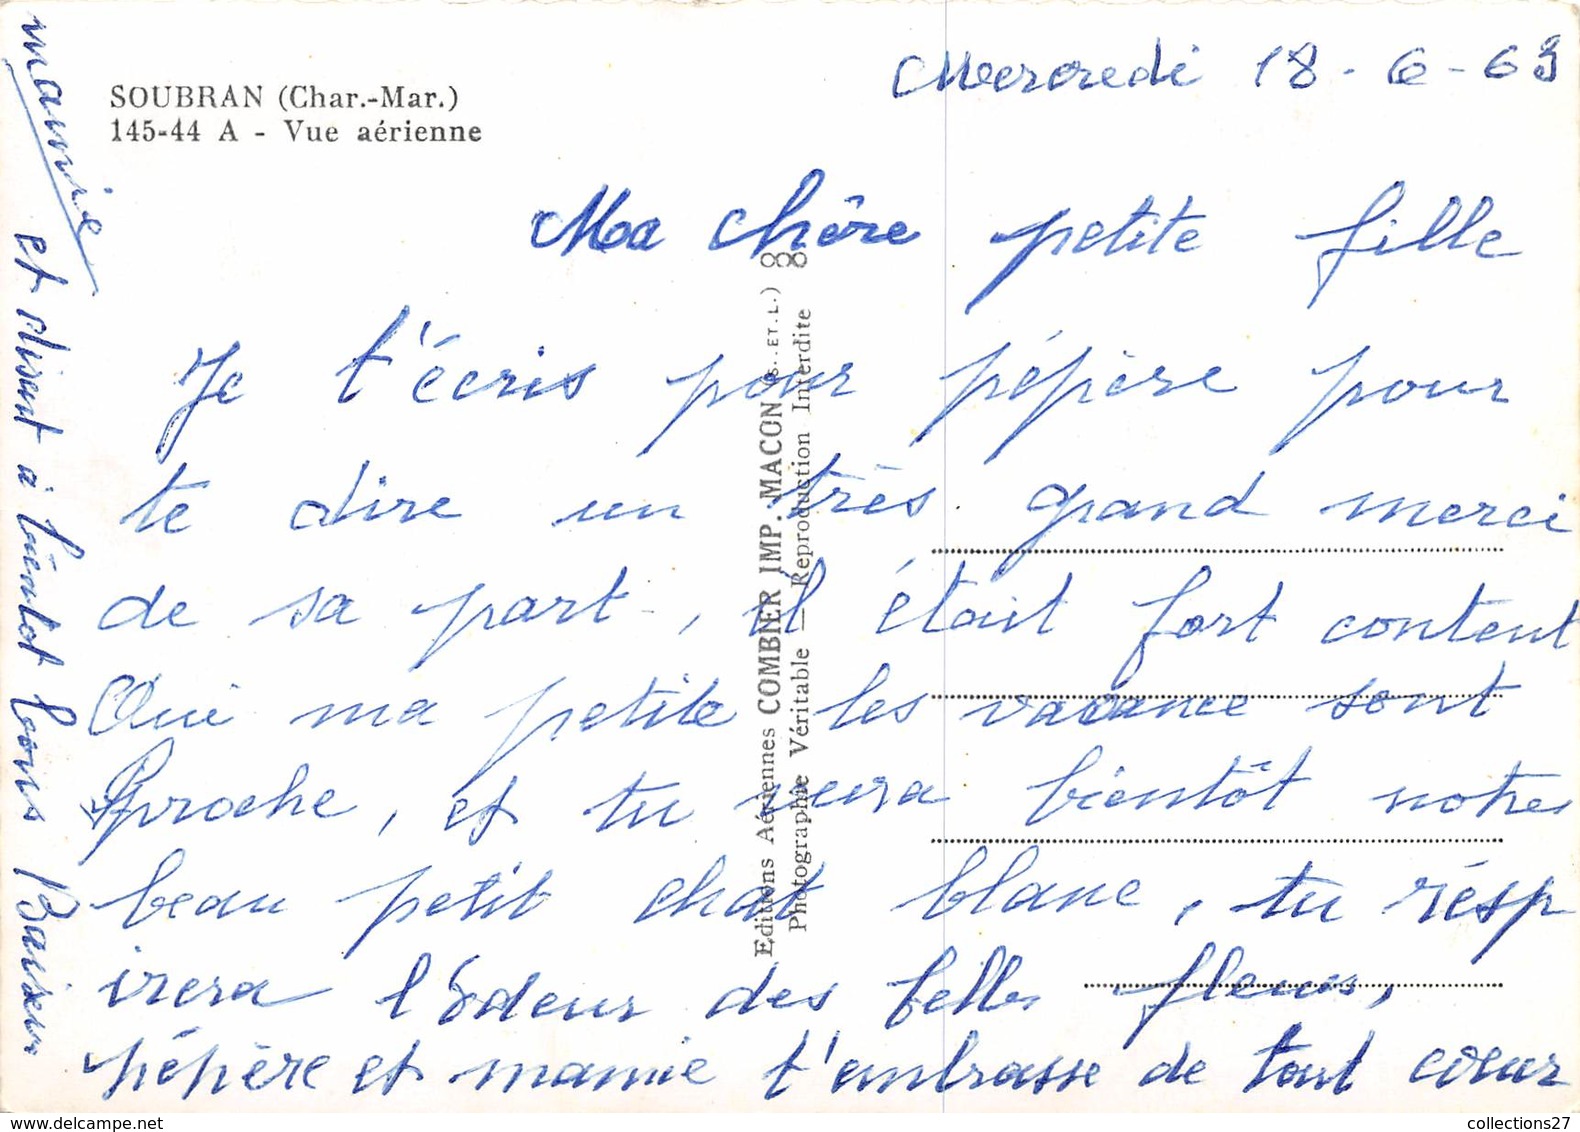 SOUBRAN (Char.-Mar.)
145-44 A - Vue aérienne
Mercredi 18-6-63
Ma chère petite fille
Je t'écris pour pépère pour
te dire un très grand merci
de sa part, il était fort content
Oui ma petite les vacance sont
Proche, et tu verra bientôt notre
beau petit chat blanc, tu résp
irera l'odeur des belles fleurs,
pépère et mamie t'embrasse de tout coeur
et disant à bientot bons Baisers
mamie
Editions Aériennes COMBIER IMP. MACON (S.. ET.L.)
Photographie Véritable — Reproduction Interdite
collections27